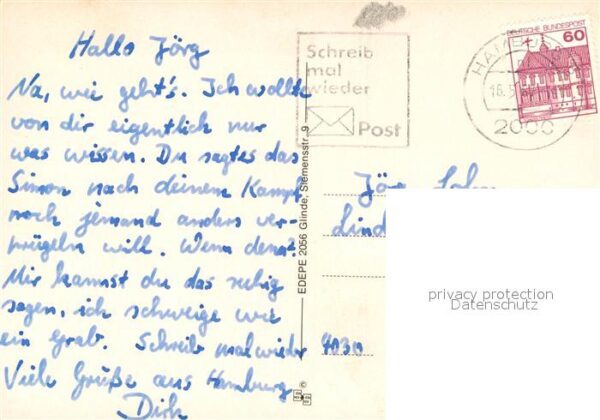 Hallo Jörg
Na, wie geht's. Ich wollte
von dir eigentlich nur
was wissen. Du sagtes das
Simon nach deinem Kampf
noch jemand anders ver-
prügeln will. Wenn denn?
Mir kannst du das ruhig
sagen, ich schweige wie
ein Grab. Schreib mal wieder
Viele Grüße aus Hamburg
Dirk
Schreib
mal
wieder
Post
DEUTSCHE BUNDESPOST
60
HAMBURG
2000
EDEPE 2056 Glinde, Siemensstr. 9
Jörg
Lind
4030
privacy protection
Datenschutz